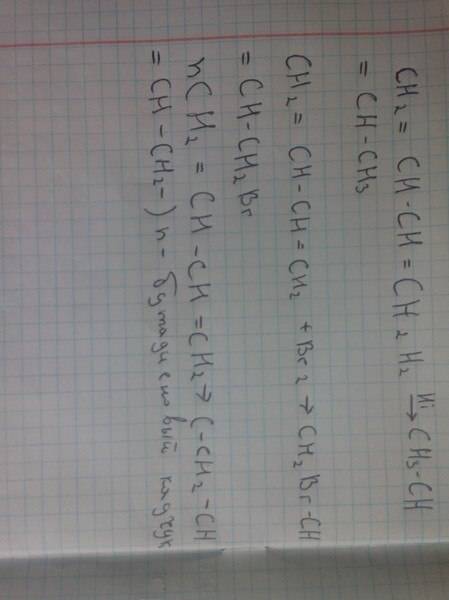 CH2 = CH-CH=CH2 H2 Ni→ CH3-CH
= CH-CH3
CH2 = CH-CH=CH2 + Br2 → CH2Br-CH
= CH-CH2Br
nCH2 = CH-CH=CH2 → (-CH2-CH
= CH-CH2-)n - бутадиеновый каучук